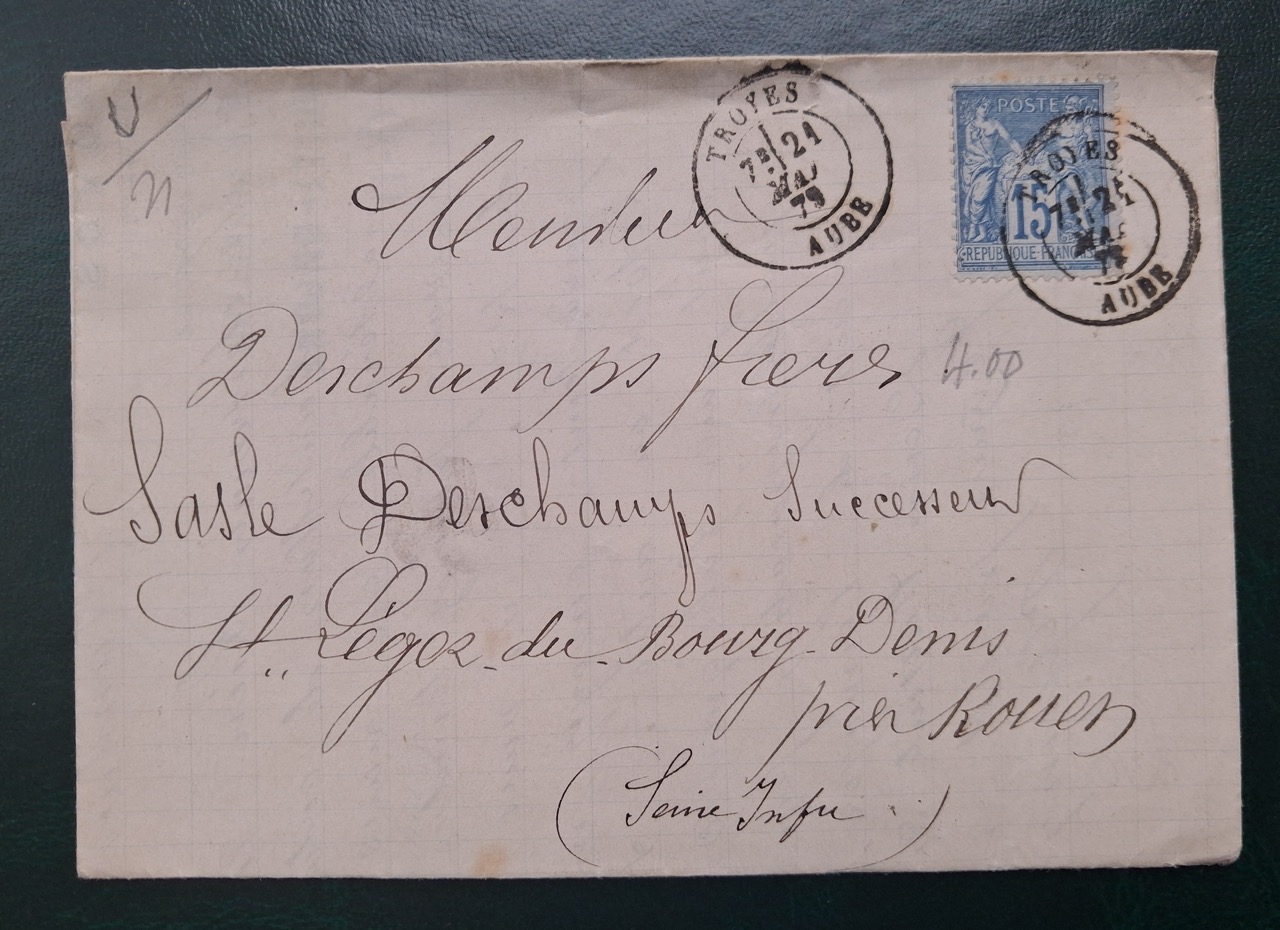 U
n
TROYES
7E 21
MAI
79
AUBE
POSTES
15
REPUBLIQUE FRANCAISE
TROYES
7E 21
MAI
79
AUBE
Messieurs
Deschamps frères
4.00
Sasle Deschamps Successeur
St. Léger-du-Bourg-Denis
près Rouen
(Seine Infre.)